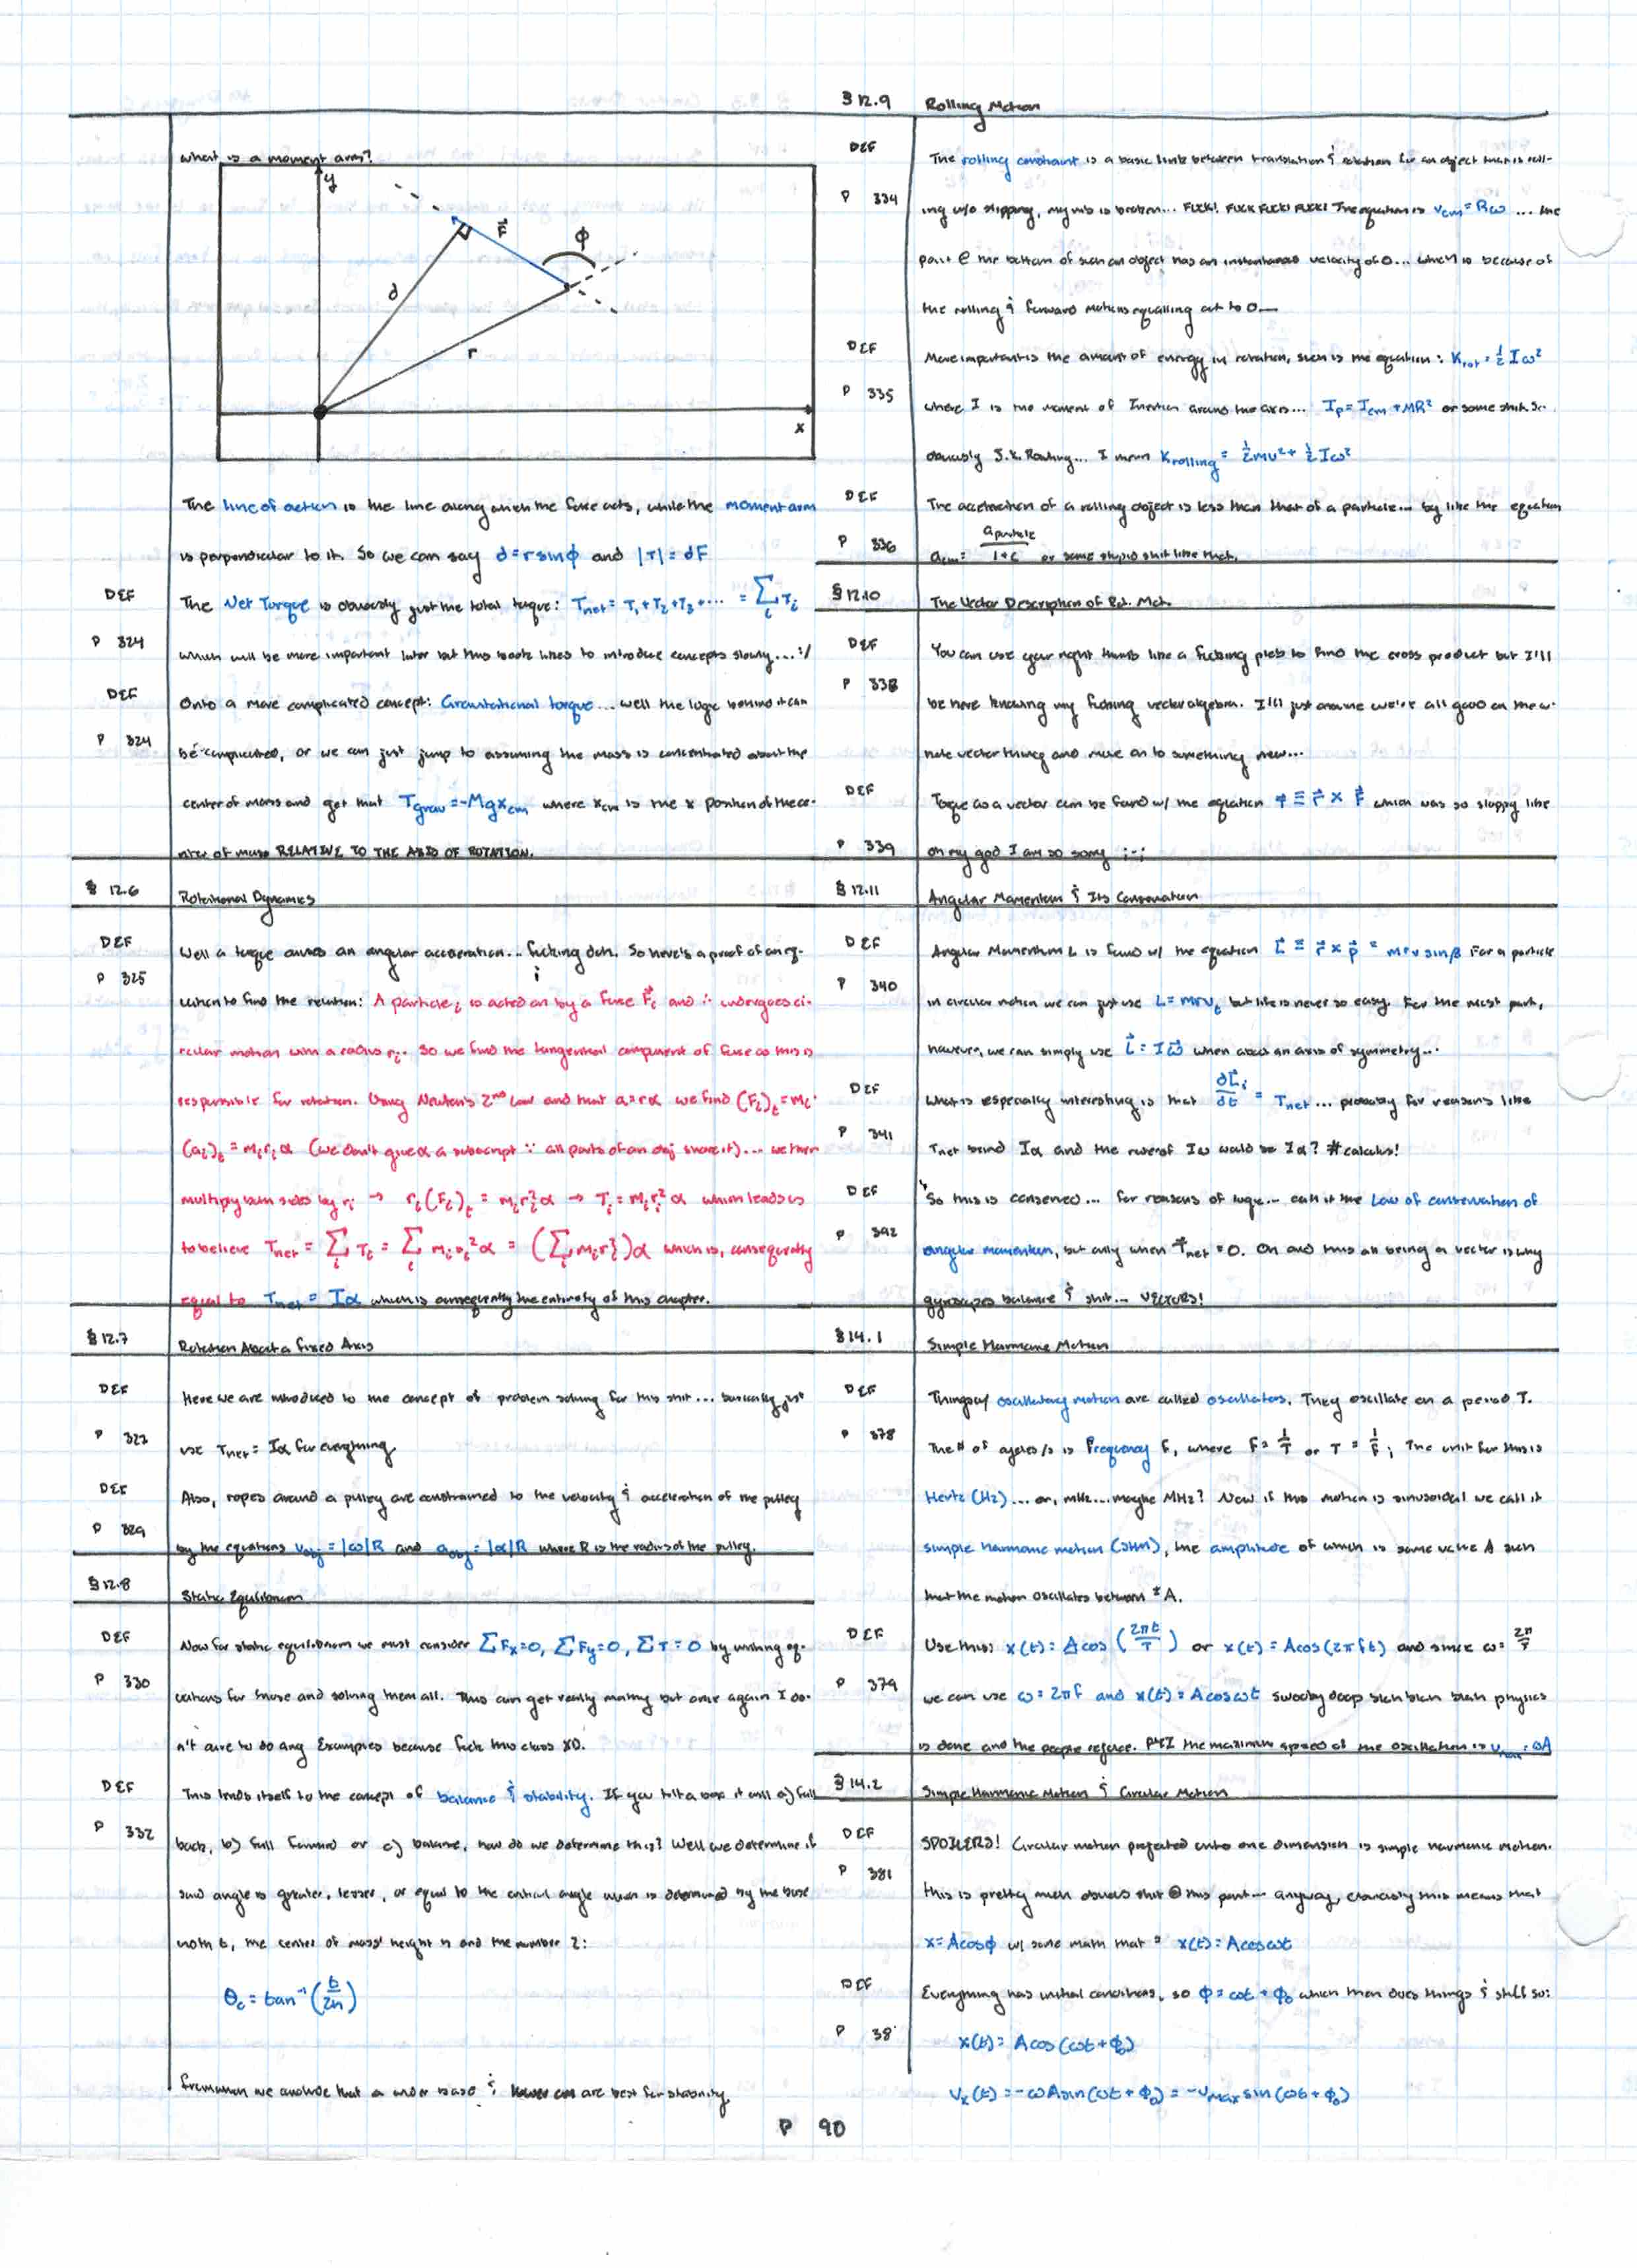 what is a moment arm?
y
F⃗
ϕ
d
r
x
The line of action is the line along which the force acts, while the moment arm
is perpendicular to it. So we can say d=rsinϕ and |τ|=dF
DEF The Net Torque is obviously just the total torque: τnet = τ₁+τ₂+τ₃+... = ∑ᵢ τᵢ
P 324 which will be more important later but this book likes to introduce concepts slowly...:/
DEF Onto a more complicated concept: Gravitational torque... well the logic behind it can
P 324 be complicated, or we can just jump to assuming the mass is concentrated about the
center of mass and get that τgrav=-Mgxcm where xcm is the x position of the ce-
nter of mass RELATIVE TO THE AXIS OF ROTATION.
§ 12.6 Rotational Dynamics
DEF Well a torque causes an angular acceleration... fucking duh. So here's a proof of an eq-
P 325 uation to find the relation: A particle i is acted on by a force F⃗ᵢ and ∴ undergoes ci-
rcular motion with a radius rᵢ. So we find the tangential component of force as this is
responsible for rotation. Using Newton's 2nd Law and that a=rα we find (Fᵢ)ₜ=mᵢ·
(aᵢ)ₜ = mᵢrᵢα (we don't give α a subscript ∵ all parts of an obj share it)... we then
multiply both sides by rᵢ → rᵢ(Fᵢ)ₜ = mᵢrᵢ²α → τᵢ = mᵢrᵢ²α which leads us
to believe τnet = ∑ᵢ τᵢ = ∑ᵢ mᵢrᵢ²α = (∑ᵢ mᵢrᵢ²)α which is, consequently
equal to τnet = Iα which is consequently the entirety of this chapter.
§ 12.7 Rotation About a Fixed Axis
DEF Here we are introduced to the concept of problem solving for this shit... basically just
P 327 use τnet = Iα for everything
DEF Also, ropes around a pulley are constrained to the velocity & acceleration of the pulley
P 329 by the equations vobj = |ω|R and aobj = |α|R where R is the radius of the pulley.
§ 12.8 Static Equilibrium
DEF Now for static equilibrium we must consider ∑Fx=0, ∑Fy=0, ∑τ=0 by writing eq-
P 330 uations for those and solving them all. This can get really mathy but once again I do-
n't care to do any Examples because fuck this class XD.
DEF This lends itself to the concept of balance & stability. If you tilt a box it will a) fall
P 332 back, b) fall forward or c) balance, how do we determine this? Well we determine if
said angle is greater, lesser, or equal to the critical angle which is determined by the base
width b, the center of mass' height h and the number 2:
θc = tan⁻¹(b/2h)
from which we conclude that a wider base & lower cm are best for stability
§ 12.9 Rolling Motion
DEF The rolling constraint is a basic link between translation & rotation for an object that is roll-
P 334 ing w/o slipping, my nib is broken... FUCK! FUCK FUCK! FUCK! The equation is vcm=Rω ... the
point @ the bottom of such an object has an instantaneous velocity of 0... which is because of
the rolling & forward motions equalling out to 0—
DEF More important is the amount of energy in rotation, such is the equation: Krot = ½Iω²
P 335 where I is the moment of Inertia around the axis... Ip = Icm + MR² or some shit. So
obviously J.K. Rowling... I mean Krolling = ½mv² + ½Iω²
DEF The acceleration of a rolling object is less than that of a particle... by like the equation
P 336 acm = aparticle/1+c or some stupid shit like that.
§12.10 The Vector Description of Rot. Mot.
DEF You can use your right thumb like a fucking pleb to find the cross product but I'll
P 338 be here knowing my fucking vector algebra. I'll just assume we're all good on the w-
hole vector thing and move on to something new...
DEF Toque as a vector can be found w/ the equation τ⃗ ≡ r⃗ × F⃗ which was so sloppy like
P 339 oh my god I am so sorry ;-;
§ 12.11 Angular Momentum & Its Conservation
DEF Angular Momentum L is found w/ the equation L⃗ ≡ r⃗ × p⃗ = mrv sinβ For a particle
P 340 in circular motion we can just use L = mrvₜ but life is never so easy. For the most part,
however, we can simply use L⃗ = Iω⃗ when about an axis of symmetry...
DEF What is especially interesting is that dL⃗ᵢ/dt = τnet... probably for reasons like
P 341 τnet being Iα and the rate of Iω would be Iα? #calculus!
DEF So this is conserved... for reasons of logic... call it the Law of conservation of
P 342 angular momentum, but only when τ⃗net = 0. Oh and this all being a vector is why
gyroscopes balance & shit... VECTORS!
§ 14.1 Simple Harmonic Motion
DEF Things w/ oscillatory motion are called oscillators. They oscillate on a period T.
P 378 The # of cycles/s is frequency f, where f = 1/T or T = 1/f; The unit for this is
Hertz (Hz)... or, mHz... maybe MHz? Now if this motion is sinusoidal we call it
simple harmonic motion (SHM), the amplitude of which is some value A such
that the motion oscillates between ±A.
DEF Use this: x(t) = Acos(2πt/T) or x(t) = Acos(2πft) and since ω = 2π/T
P 379 we can use ω = 2πf and x(t) = Acosωt swooby doop blah blah blah physics
is done and the people rejoice. PYI the maximum speed of the oscillation is vmax = ωA
§ 14.2 Simple Harmonic Motion & Circular Motion
DEF SPOILERS! Circular motion projected onto one dimension is simple harmonic motion.
P 381 this is pretty much obvious shit @ this point... anyway, obviously this means that
x = Acosϕ w/ some math that = x(t) = Acosωt
DEF Everything has initial conditions, so ϕ = ωt + ϕ₀ which then does things & stuff so:
P 38 x(t) = Acos(ωt + ϕ₀)
vx(t) = -ωAsin(ωt + ϕ₀) = -vmax sin(ωt + ϕ₀)
P 90